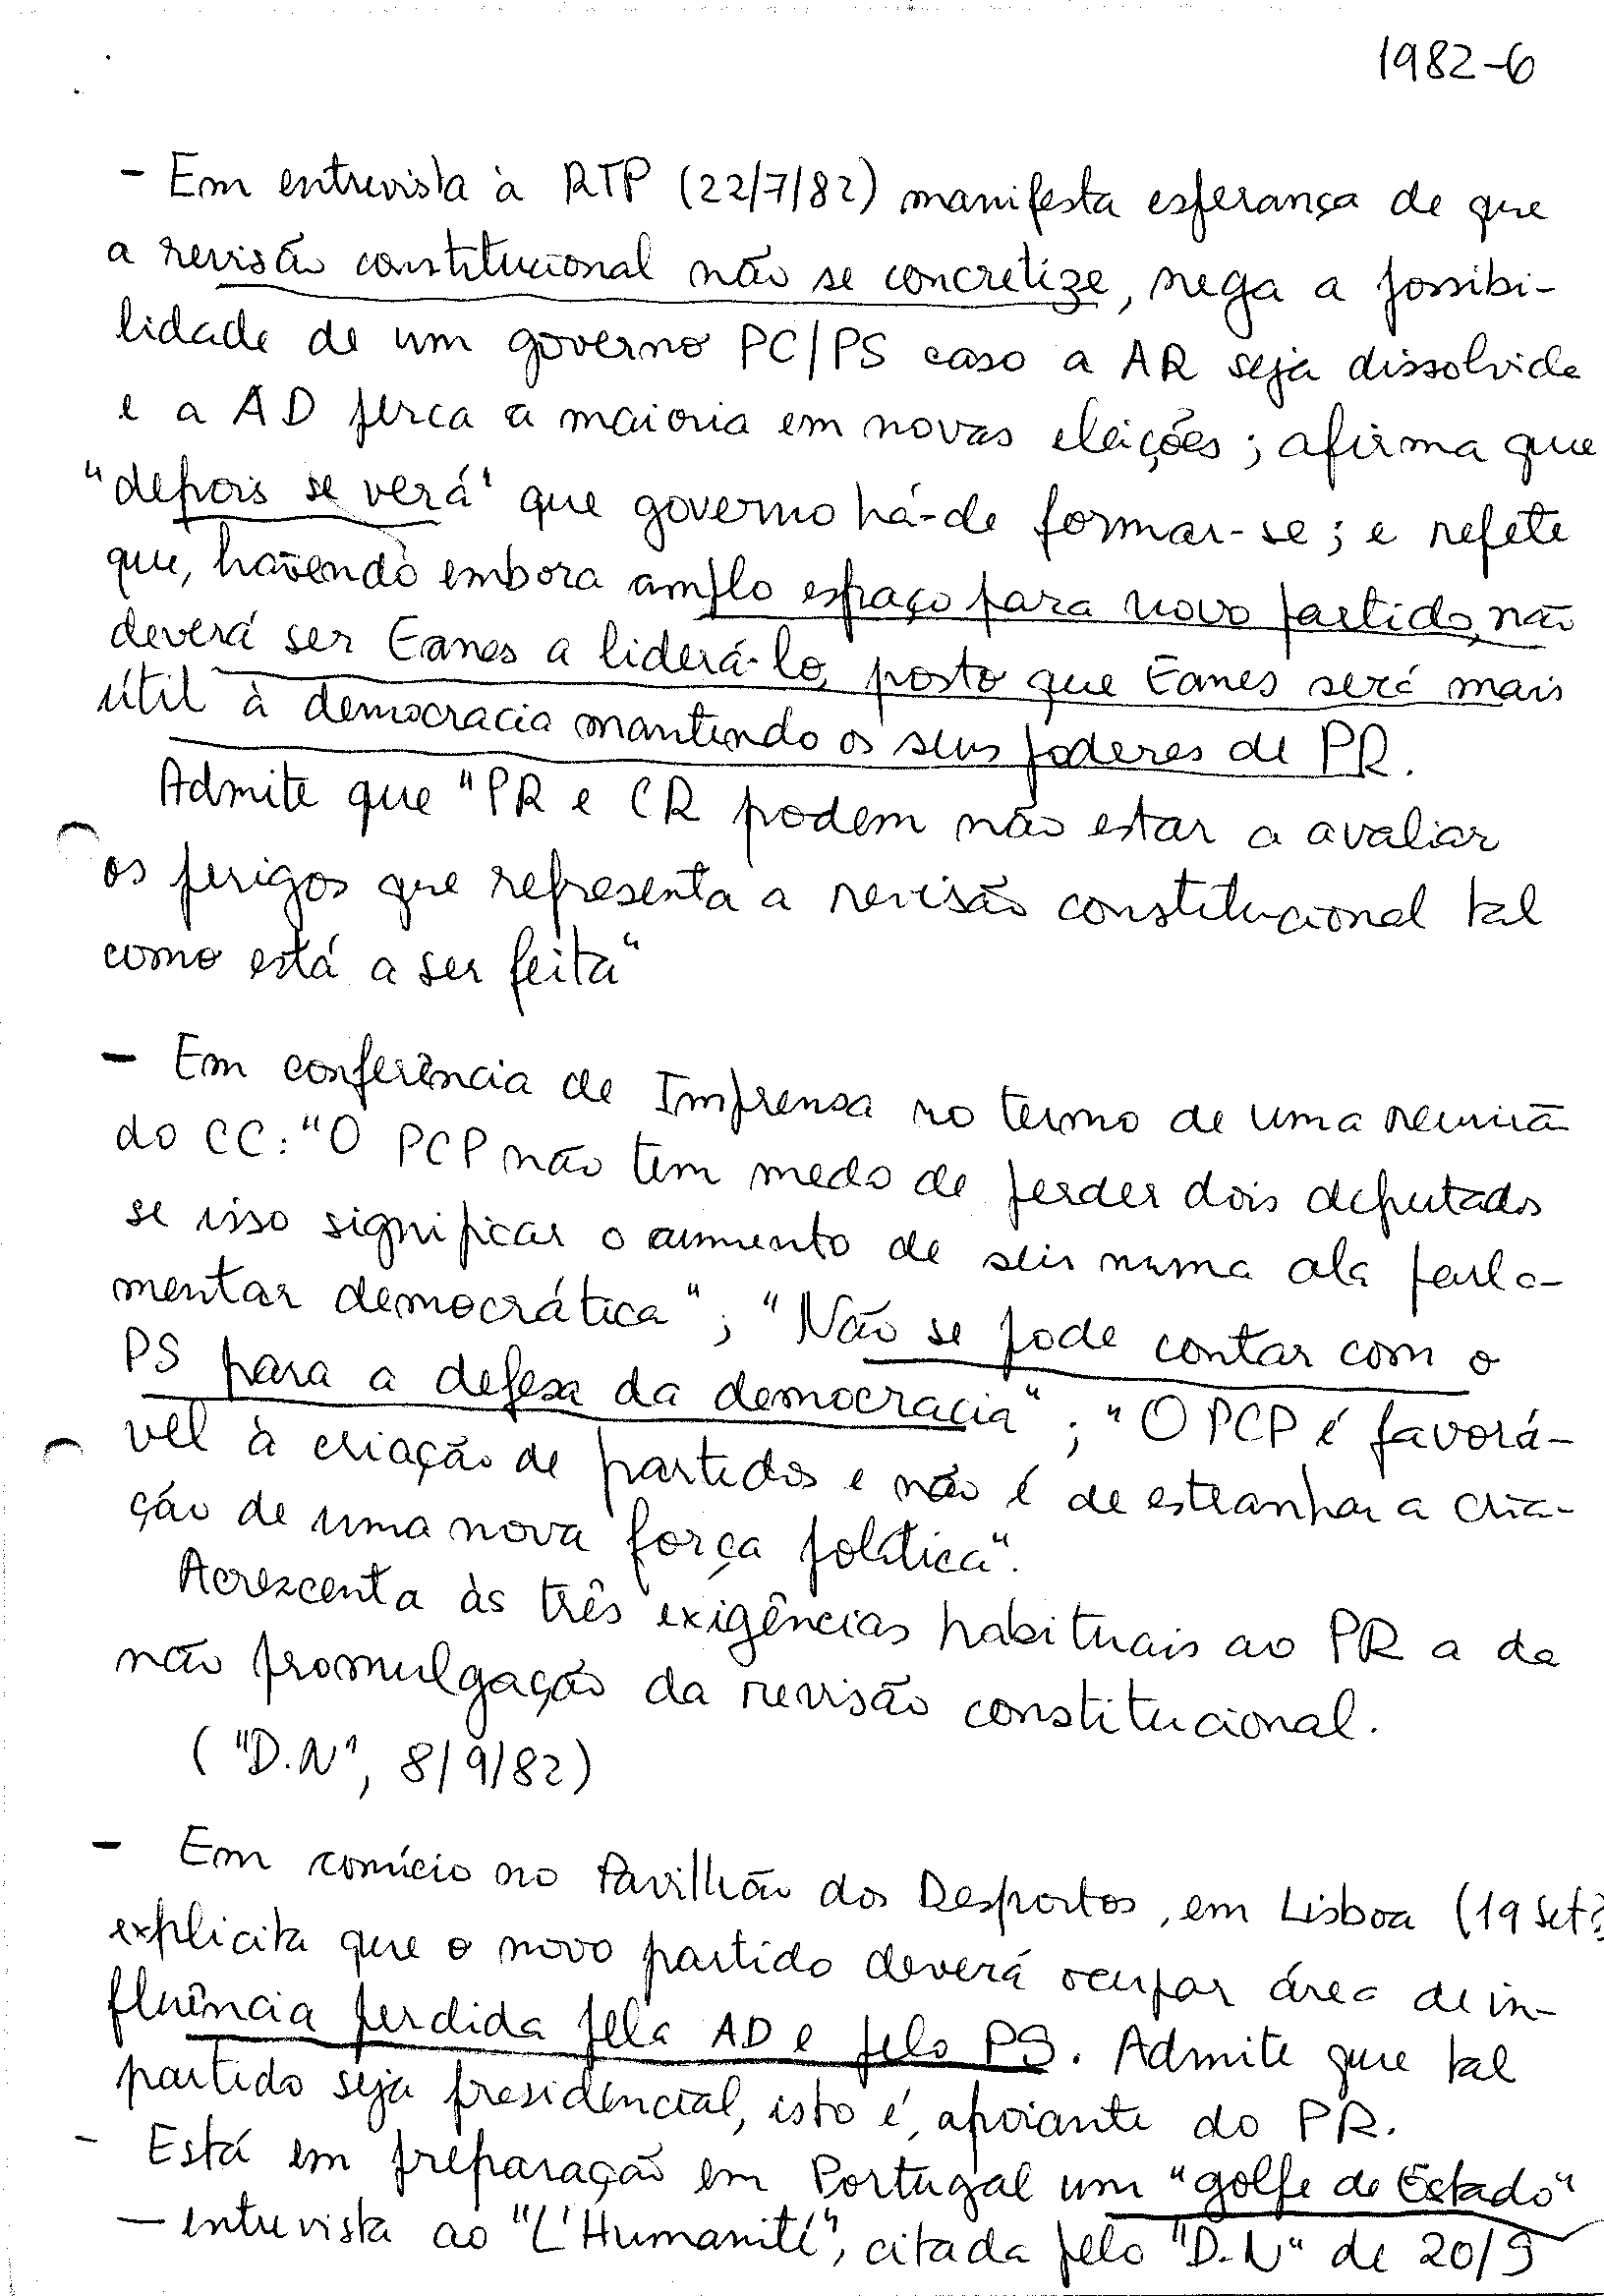 1982-6
- Em entrevista à RTP (22/7/82) manifesta esperança de que
a revisão constitucional não se concretize, nega a possibi-
lidade de um governo PC/PS caso a AR seja dissolvida
e a AD perca a maioria em novas eleições; afirma que
"depois se verá" que governo há-de formar-se; e repete
que, havendo embora amplo espaço para novo partido, não
deverá ser Eanes a liderá-lo, posto que Eanes será mais
útil à democracia mantendo os seus poderes de PR.
Admite que "PR e CR podem não estar a avaliar
os perigos que representa a revisão constitucional tal
como está a ser feita"
- Em conferência de Imprensa no termo de uma reunião
do CC: "O PCP não tem medo de perder dois deputados
se isso significar o aumento de seis numa ala parla-
mentar democrática"; "Não se pode contar com o
PS para a defesa da democracia"; "O PCP é favorá-
vel à criação de partidos e não é de estranhar a cria-
ção de uma nova força política".
Acrescenta às três exigências habituais ao PR a da
não promulgação da revisão constitucional.
("D.N", 8/9/82)
- Em comício no Pavilhão dos Desportos, em Lisboa (19 Set?
explicita que o novo partido deverá ocupar área de in-
fluência perdida pela AD e pelo PS. Admite que tal
partido seja presidencial, isto é, apoiante do PR.
- Está em preparação em Portugal um "golpe de Estado"
- entrevista ao "L'Humanité", citada pelo "D.N" de 20/9